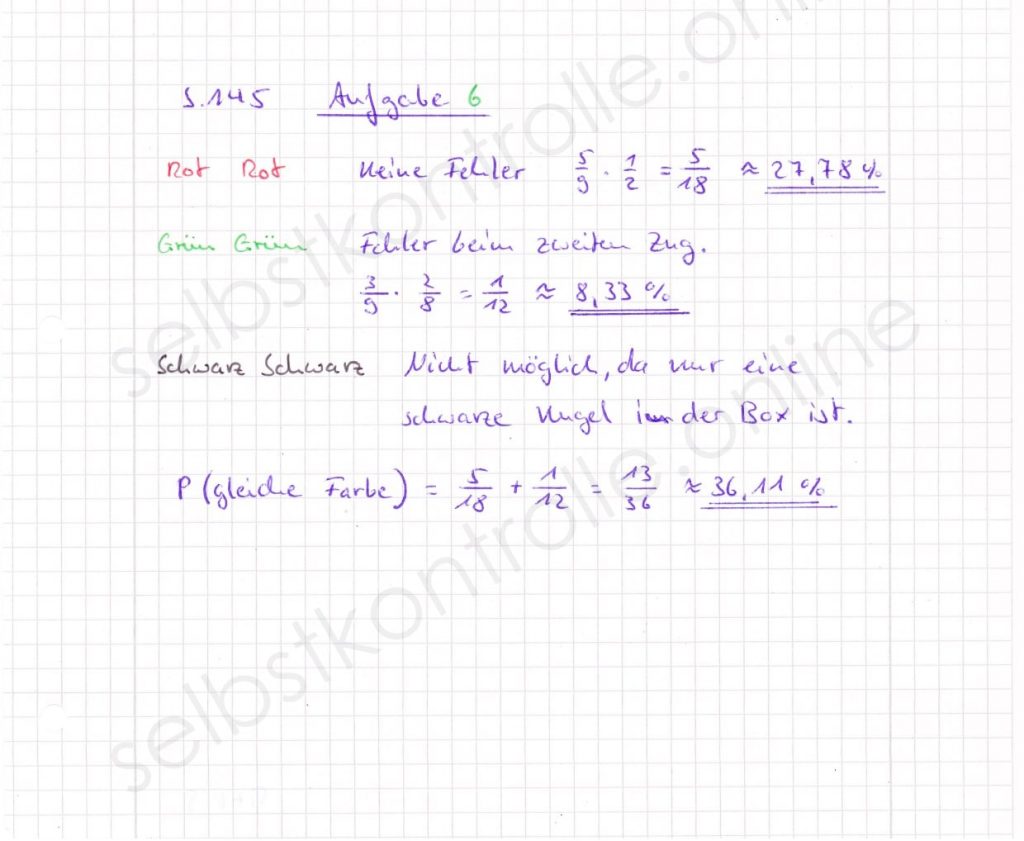 S.145 Aufgabe 6
Rot Rot Keine Fehler 5/9 · 1/2 = 5/18 ≈ 27,78 %
Grün Grün Fehler beim zweiten Zug.
3/9 · 2/8 = 1/12 ≈ 8,33 %
Schwarz Schwarz Nicht möglich, da nur eine
schwarze Kugel in der Box ist.
P (gleiche Farbe) = 5/18 + 1/12 = 13/36 ≈ 36,11 %
selbstkontrolle.online
selbstkontrolle.online